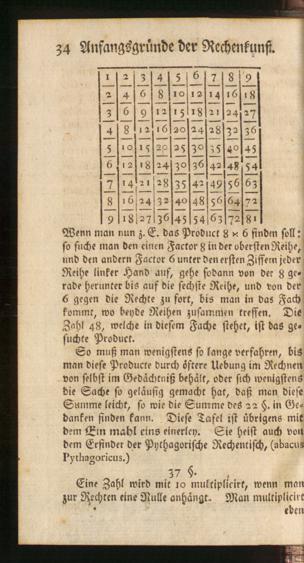 34 Anfangsgründe der Rechenkunst.
1 2 3 4 5 6 7 8 9
2 4 6 8 10 12 14 16 18
3 6 9 12 15 18 21 24 27
4 8 12 16 20 24 28 32 36
5 10 15 20 25 30 35 40 45
6 12 18 24 30 36 42 48 54
7 14 21 28 35 42 49 56 63
8 16 24 32 40 48 56 64 72
9 18 27 36 45 54 63 72 81
Wenn man nun z. E. das Product 8 × 6 finden soll:
so suche man den einen Factor 8 in der obersten Reihe,
und den andern Factor 6 unter den ersten Ziffern jeder
Reihe linker Hand auf, gehe sodann von der 8 ge-
rade herunter bis auf die sechste Reihe, und von der
6 gegen die Rechte zu fort, bis man in das Fach
kommt, wo beyde Reihen zusammen treffen. Die
Zahl 48, welche in diesem Fache stehet, ist das ge-
suchte Product.
So muß man wenigstens so lange verfahren, bis
man diese Producte durch öftere Uebung im Rechnen
von selbst im Gedächtniß behält, oder sich wenigstens
die Sache so geläufig gemacht hat, daß man diese
Summe leicht, so wie die Summe des 22 §. in Ge-
danken finden kann. Diese Tafel ist übrigens mit
dem Ein mahl eins einerley. Sie heist auch von
dem Erfinder der Pythagorische Rechentisch, (abacus
Pythagoricus.)
37 §.
Eine Zahl wird mit 10 multiplicirt, wenn man
zur Rechten eine Nulle anhängt. Man multiplicirt
eben